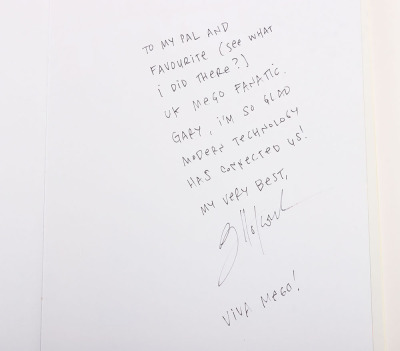 TO MY PAL AND
FAVOURITE (SEE WHAT
I DID THERE?)
UK MEGO FANATIC.
GARY, I'M SO GLAD
MODERN TECHNOLOGY
HAS CONNECTED US!
MY VERY BEST,
VIVA MEGO!